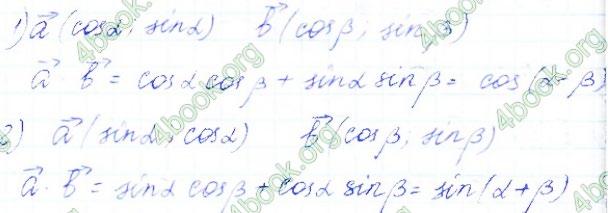 1) a⃗ (cosα; sinα)    b⃗ (cosβ; sinβ)
a⃗ · b⃗ = cosα cosβ + sinα sinβ = cos(α - β)
2) a⃗ (sinα; cosα)    b⃗ (cosβ; sinβ)
a⃗ · b⃗ = sinα cosβ + cosα sinβ = sin(α + β)
4book.org
4book.org
4book.org
4book.org